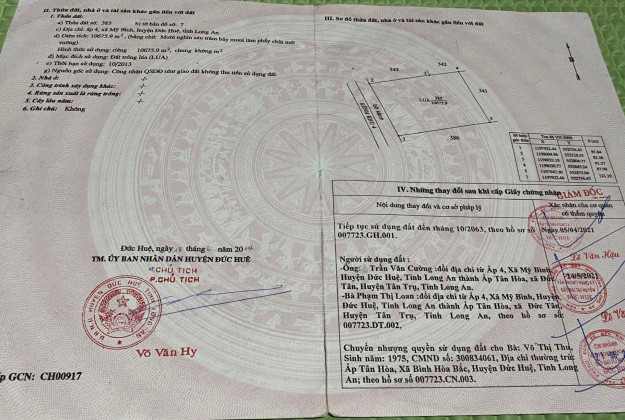 II. Thửa đất, nhà ở và tài sản khác gắn liền với đất
1. Thửa đất:
a) Thửa đất số: 365 b) tờ bản đồ số: 7
c) Địa chỉ: ấp 4, xã Mỹ Bình, huyện Đức Huệ, tỉnh Long An
d) Diện tích: 10675.9 m², (bằng chữ: Mười nghìn sáu trăm bảy mươi lăm phẩy chín mét
vuông)
Hình thức sử dụng: riêng 10675.9 m², chung không m²
đ) Mục đích sử dụng: Đất trồng lúa (LUA)
e) Thời hạn sử dụng: 10/2013
g) Nguồn gốc sử dụng: Công nhận QSDĐ như giao đất không thu tiền sử dụng đất
2. Nhà ở:
3. Công trình xây dựng khác:
4. Rừng sản xuất là rừng trồng:
5. Cây lâu năm:
6. Ghi chú: Không
Đức Huệ, ngày tháng năm 20
TM. ỦY BAN NHÂN DÂN HUYỆN ĐỨC HUỆ
CHỦ TỊCH
P.CHỦ TỊCH
Võ Văn Hy
ấp GCN: CH00917
III. Sơ đồ thửa đất, nhà ở và tài sản khác gắn liền với đất
343
342
341
LUA
366
IV. Những thay đổi sau khi cấp Giấy chứng nhận
Nội dung thay đổi và cơ sở pháp lý
Xác nhận của cơ quan
có thẩm quyền
GIÁM ĐỐC
Tiếp tục sử dụng đất đến tháng 10/2063, theo hồ sơ số
007723.GH.001.
Ngày 05/04/2021
Lê Văn Hậu
Người sử dụng đất :
-Ông: Trần Văn Cường :đổi địa chỉ từ Ấp 4, Xã Mỹ Bình,
Huyện Đức Huệ, Tỉnh Long An thành Ấp Tân Hòa, xã Đức
Tân, Huyện Tân Trụ, Tỉnh Long An.
-Bà Phạm Thị Loan :đổi địa chỉ từ Ấp 4, Xã Mỹ Bình, Huyện
Đức Huệ, Tỉnh Long An thành Ấp Tân Hòa, xã Đức Tân,
Huyện Tân Trụ, Tỉnh Long An, theo hồ sơ số
007723.DT.002,
24/5/2021
Chuyển nhượng quyền sử dụng đất cho Bà: Võ Thị Thu,
Sinh năm: 1975, CMND số: 300834061, Địa chỉ thường trú:
Ấp Tân Hòa, Xã Bình Hòa Bắc, Huyện Đức Huệ, Tỉnh Long
An; theo hồ sơ số 007723.CN.003.